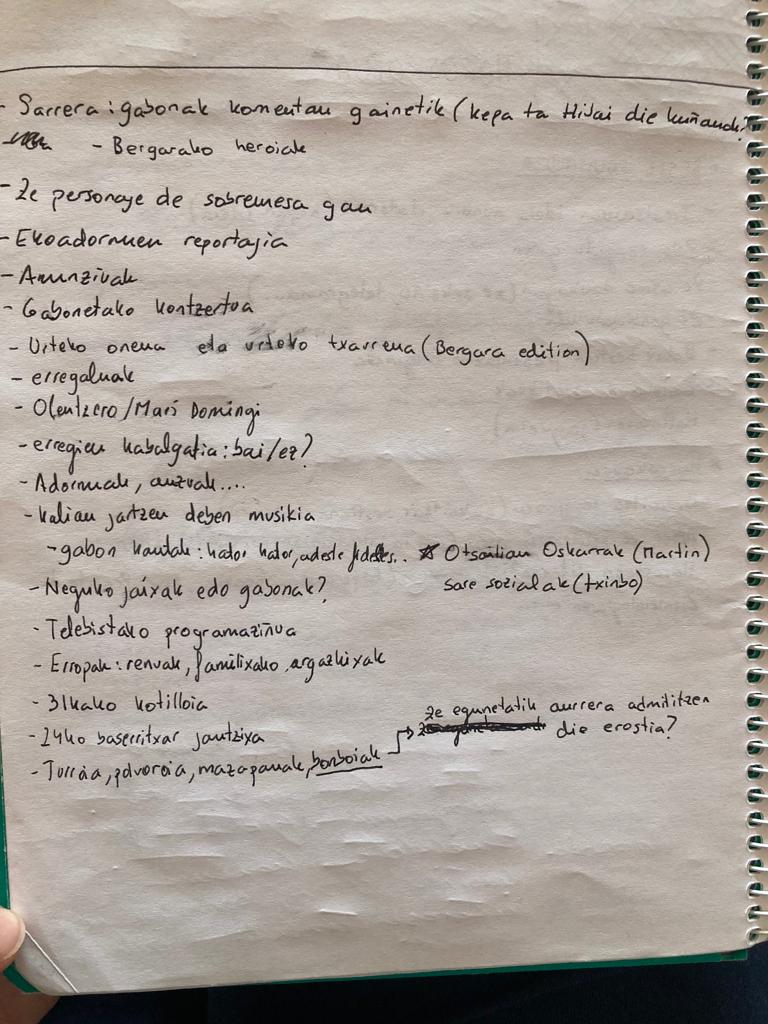 - Sarrera: gabonak komentau gainetik (kepa ta Hijai die kuñauak?
- Bergarako heroiak
- Ze personaje de sobremesa gau
- Ekoadornuen reportajia
- Anunzivak
- Gabonetako kontzertua
- Urteko onena eta urteko txarrena (Bergara edition)
- erregaluak
- Olentzero/Mari Domingi
- erregien kabalgatia: bai/ez?
- Adornuak, auzuak....
- kalian jartzen deben musikia
- gabon kantak: hator hator, adeste fideles..
* Otsailian Oskarrak (Martin)
sare sozialak (txinbo)
- Neguko jaixak edo gabonak?
- Telebistako programaziñua
- Erropak: renuak, familixako argazkixak
- 31kako kotilloia
- 24ko baserritxar jantzixa
- Turroia, polvoroia, mazapanak, bonboiak
ze egunetatik aurrera admititzen
die erostia?